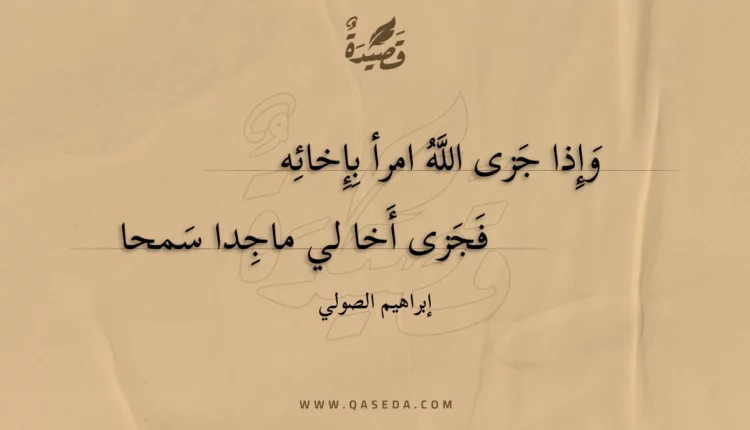 قَصِيْدَةٌ
وَإِذا جَزى اللَّهُ امرأ بِإِخائِه
فَجَزى أَخا لي ماجِدا سَمحا
إبراهيم الصولي
WWW.QASEDA.COM